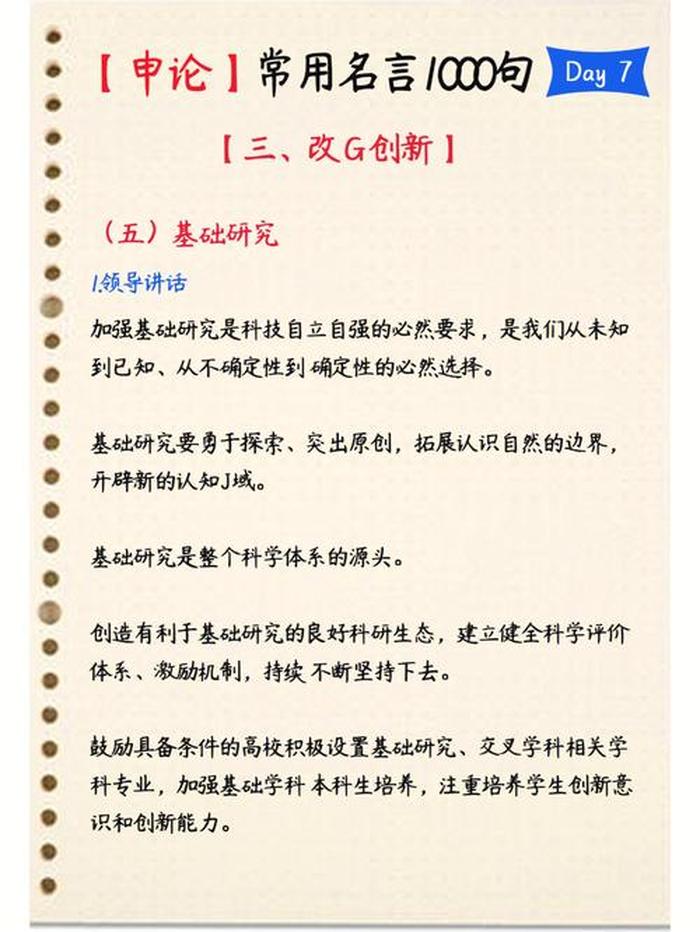 【申论】常用名言1000句 Day 7
【三、改G创新】
（五）基础研究
1.领导讲话
加强基础研究是科技自立自强的必然要求，是我们从未知
到已知、从不确定性到确定性的必然选择。
基础研究要勇于探索、突出原创，拓展认识自然的边界，
开辟新的认知J域。
基础研究是整个科学体系的源头。
创造有利于基础研究的良好科研生态，建立健全科学评价
体系、激励机制，持续不断坚持下去。
鼓励具备条件的高校积极设置基础研究、交叉学科相关学
科专业，加强基础学科本科生培养，注重培养学生创新意
识和创新能力。